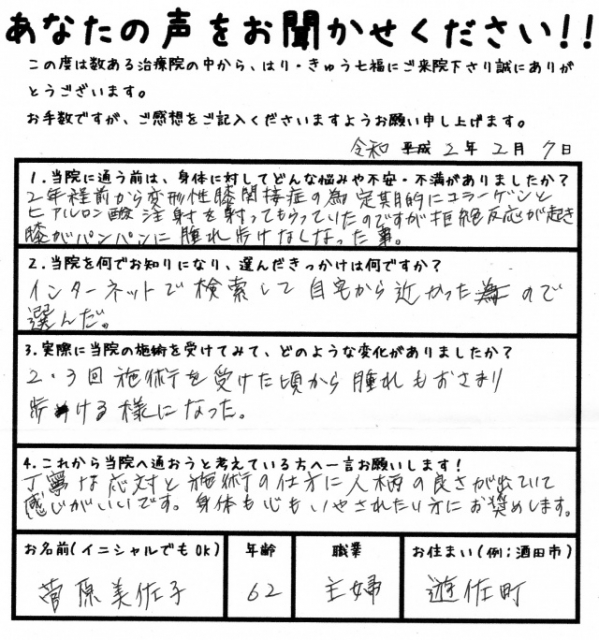 あなたの声をお聞かせください!!
この度は数ある治療院の中から、はり・きゅう七福にご来院下さり誠にありが
とうございます。
お手数ですが、ご感想をご記入くださいますようお願い申し上げます。
令和 平成 2年 2月 7日
1.当院に通う前は、身体に対してどんな悩みや不安・不満がありましたか?
2年程前から変形性膝関接症の為 定期的にコラーゲンと
ヒアルロン酸注射を射ってもらっていたのですが拒絶反応が起き
膝がパンパンに腫れ歩けなしなった事。
2.当院を何でお知りになり、選んだきっかけは何ですか?
インターネットで検索して自宅から近かったので
選んだ。
3.実際に当院の施術を受けてみて、どのような変化がありましたか?
2・3回施術を受けた頃から腫れもおさまり
歩ける様になった。
4.これから当院へ通おうと考えている方へ一言お願いします!
丁寧な応対と施術の仕方に人柄の良さが出ていて
感じがいいです。身体も心もいやされたい方にお奨めします。
お名前(イニシャルでもOK) 年齢 職業 お住まい(例;酒田市)
菅原美佐子 62 主婦 遊佐町